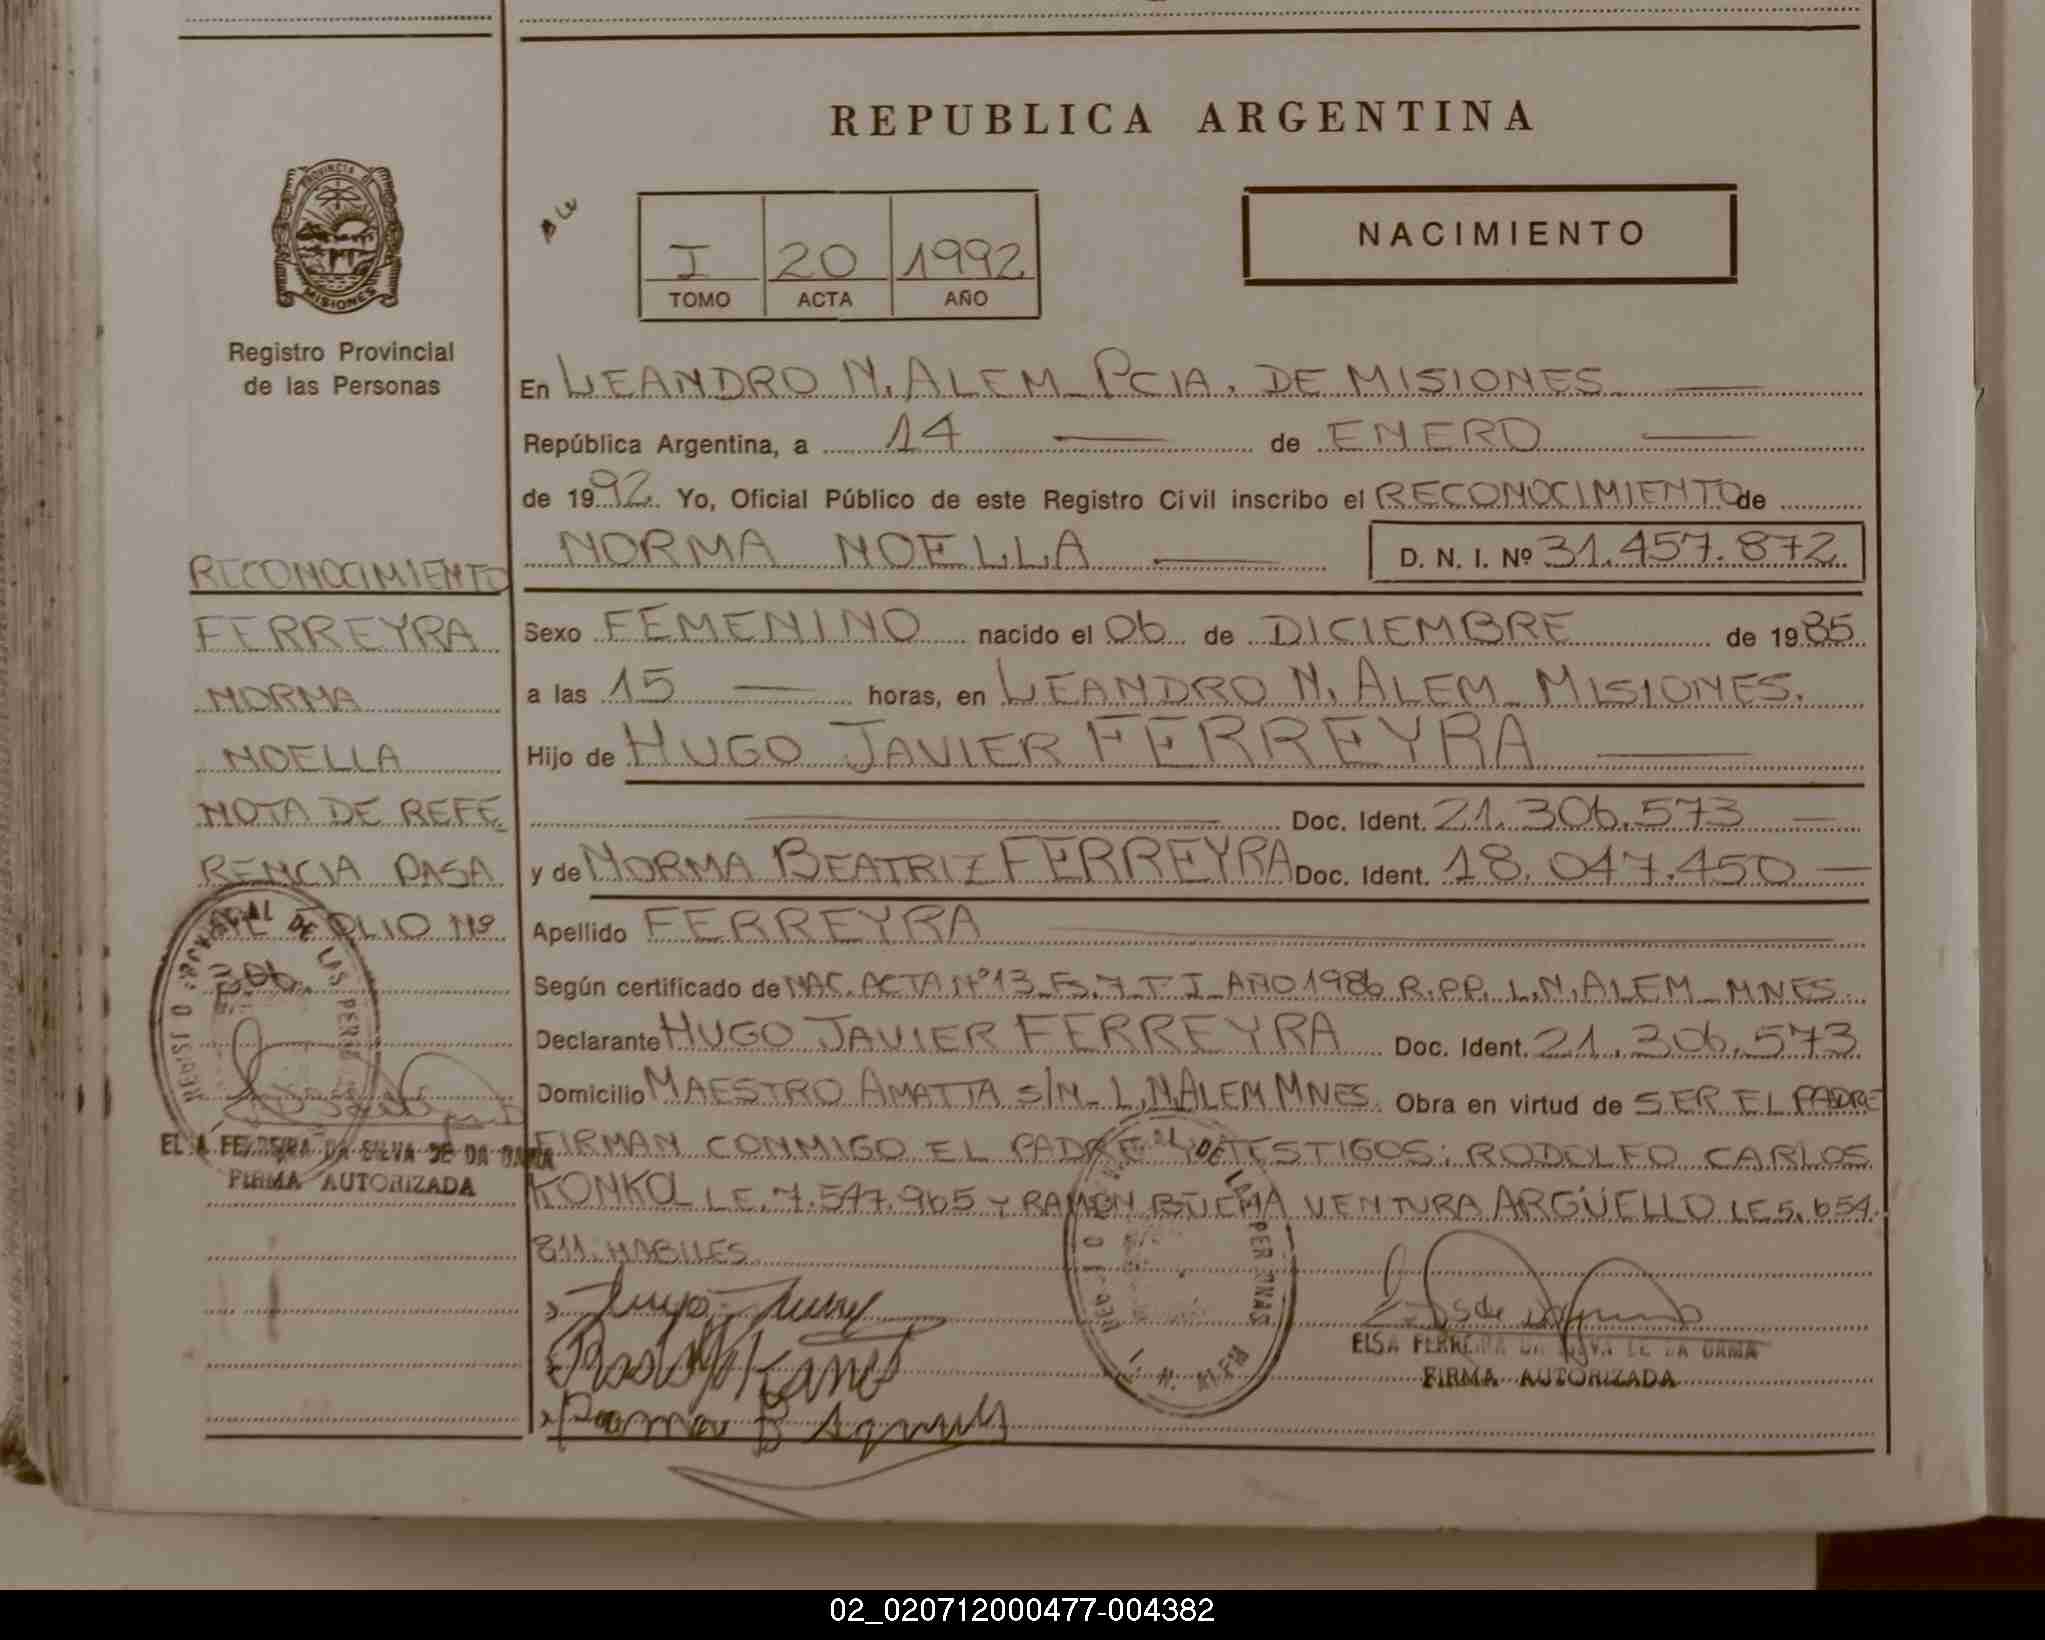 REPUBLICA ARGENTINA
PROVINCIA DE
MISIONES
Registro Provincial
de las Personas
I 20 1992
TOMO ACTA AÑO
NACIMIENTO
En LEANDRO N. ALEM PCIA. DE MISIONES
República Argentina, a 14 de ENERO
de 1992 Yo, Oficial Público de este Registro Civil inscribo el RECONOCIMIENTO de
NORMA NOELLA D. N. I. Nº 31.457.872
Sexo FEMENINO nacido el 06 de DICIEMBRE de 1985
a las 15 horas, en LEANDRO N. ALEM MISIONES.
Hijo de HUGO JAVIER FERREYRA
Doc. Ident. 21.306.573
y de NORMA BEATRIZ FERREYRA Doc. Ident. 18.047.450
Apellido FERREYRA
Según certificado de NAC. ACTA Nº 13 Fs. 7 T I AÑO 1986 R.P.P. L.N. ALEM MNES.
Declarante HUGO JAVIER FERREYRA Doc. Ident. 21.306.573
Domicilio MAESTRO AMATTA S/N L.N ALEM MNES. Obra en virtud de SER EL PADRE
FIRMAN CONMIGO EL PADRE Y TESTIGOS: RODOLFO CARLOS
KONKOL LE. 7.547.965 Y RAMON BUENA VENTURA ARGÜELLO LE 5.654.
811. HABILES
RECONOCIMIENTO
FERREYRA
NORMA
NOELLA
NOTA DE REFE
RENCIA PASA
FOLIO Nº
306
FIRMA AUTORIZADA
DE LAS PERSONAS
L. N. ALEM
ELSA FERREIRA DA SILVA DE DA GAMA
FIRMA AUTORIZADA
02_020712000477-004382